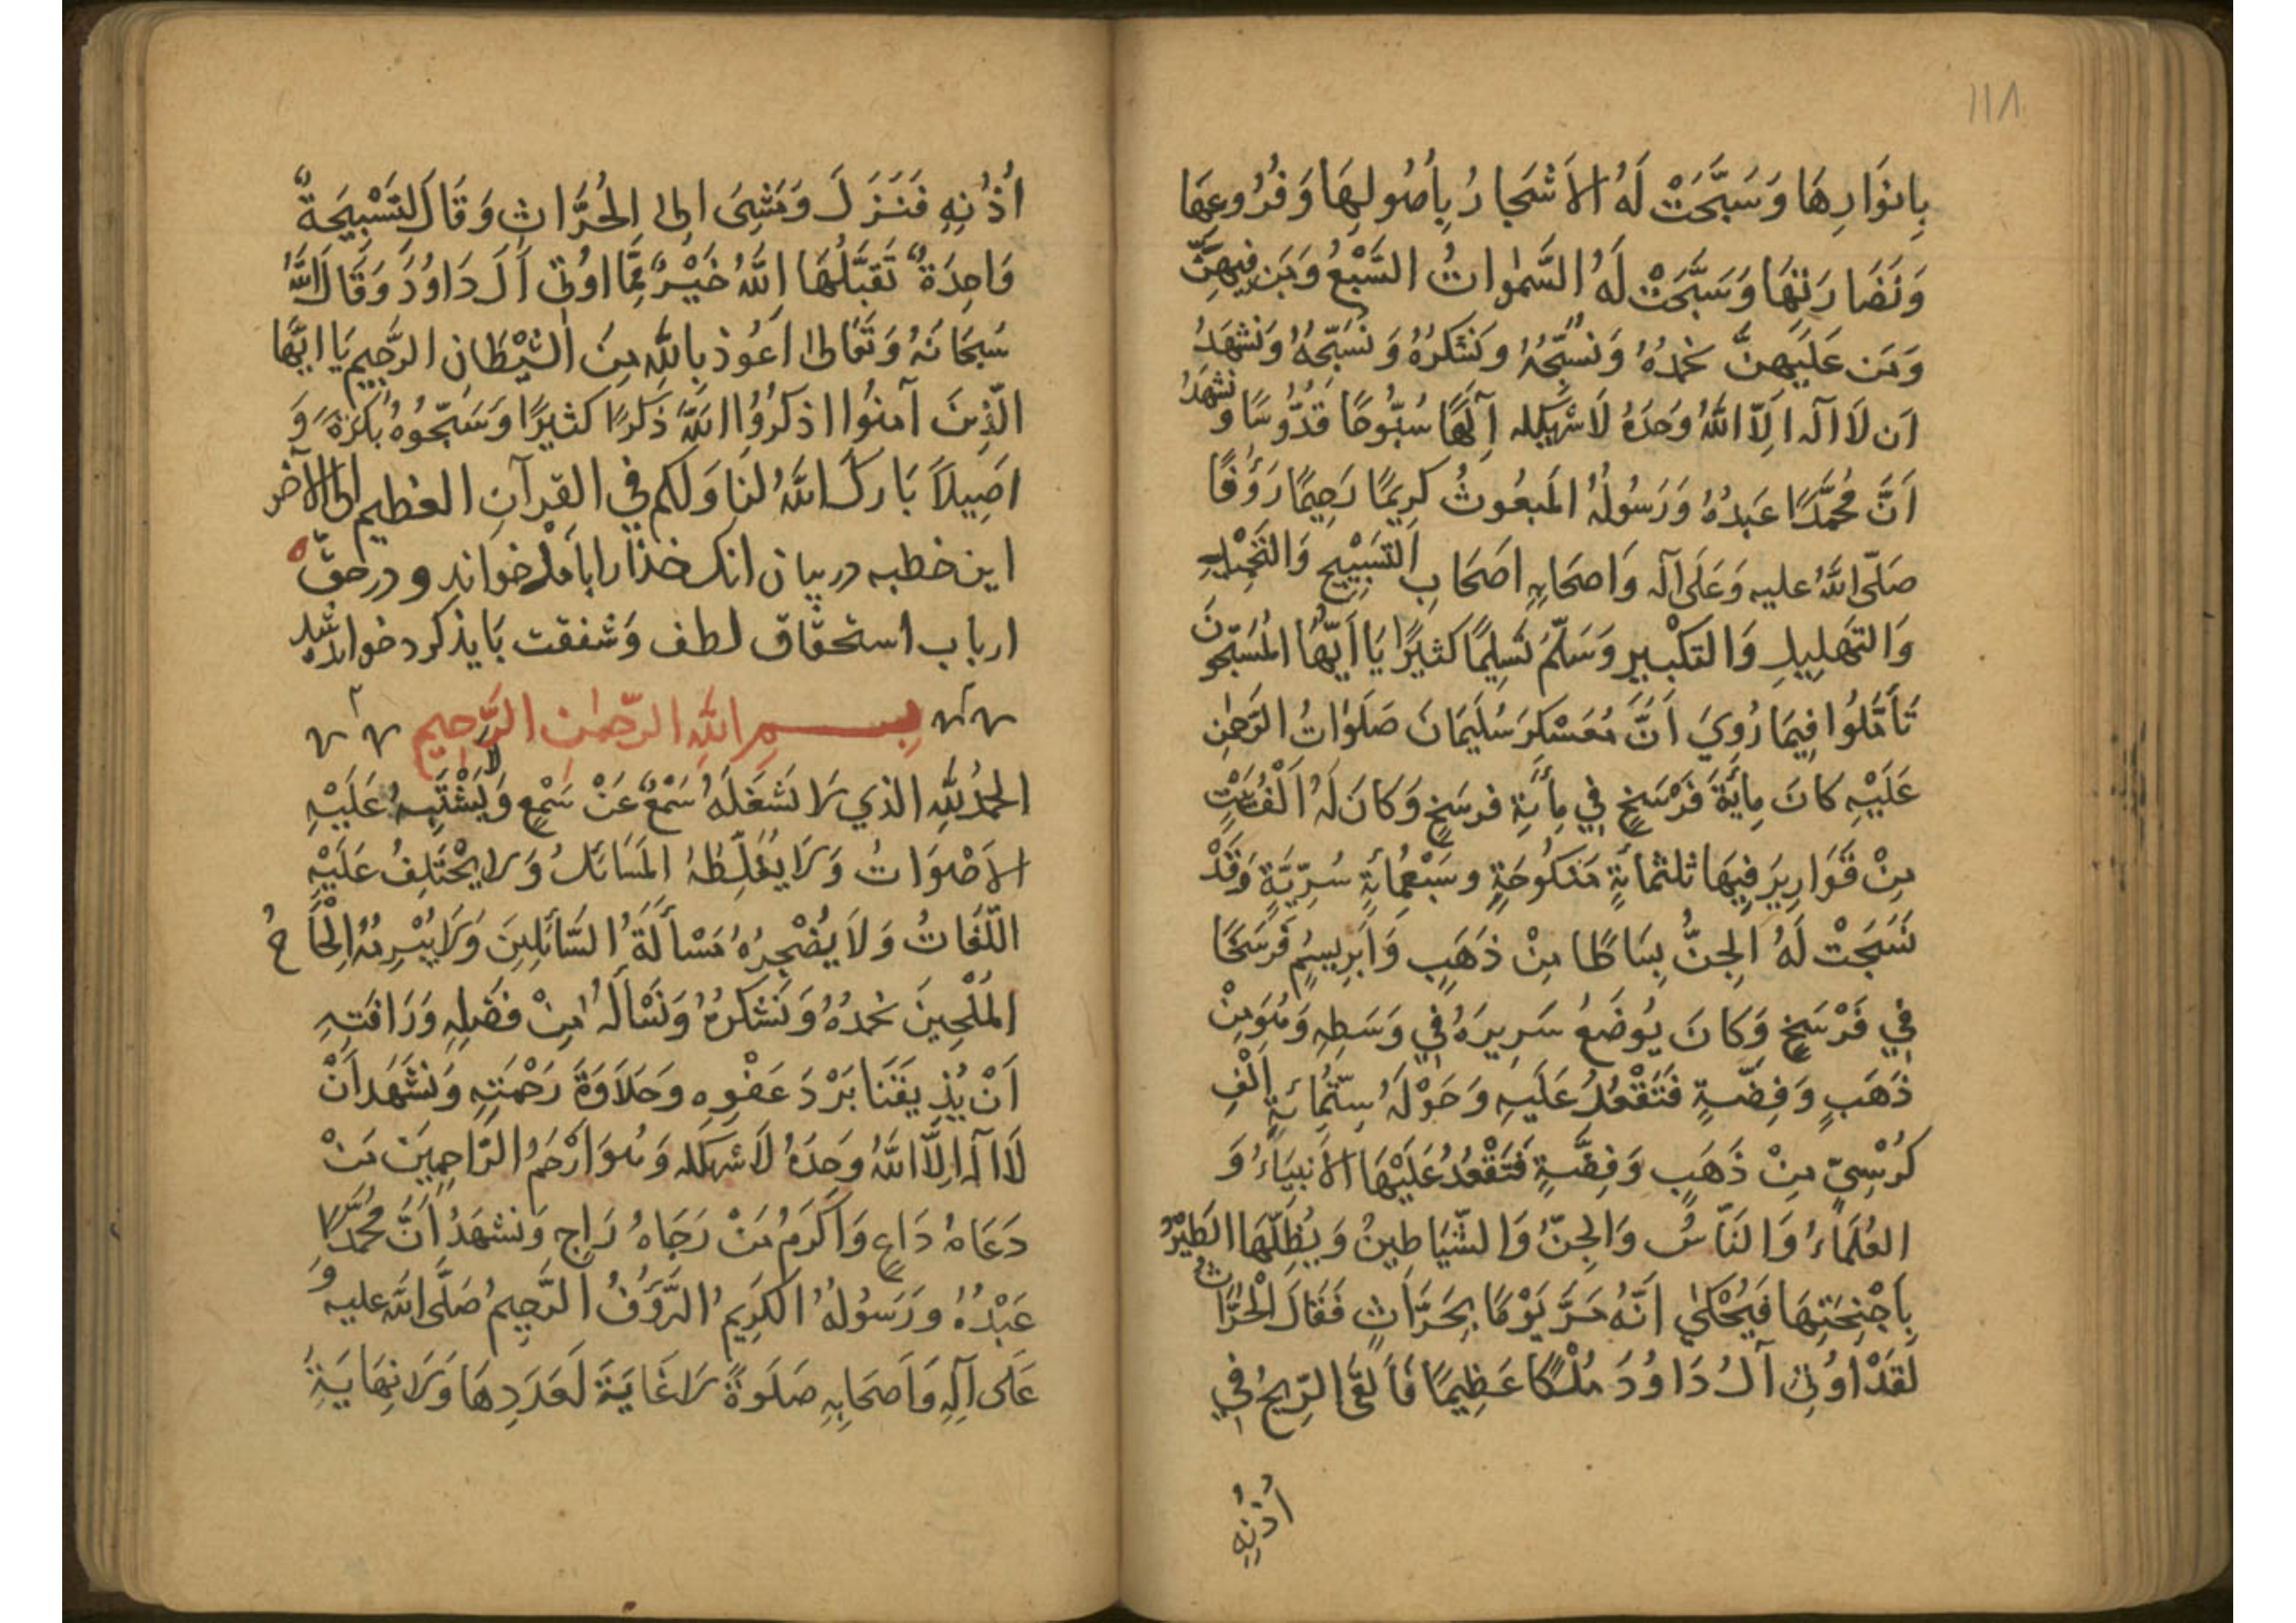 ١١٨
بِانوَارِهَا وَسَبَّحَتْ لَهُ الاَشجَارُ بِأُصُولِهَا وَفُرُوعِهَا
وَنَضَارَتهَا وَسَبَّحَتْ لَهُ السَّمٰوَاتُ السَّبْعُ وَمَن فِيهِنَّ
وَمَن عَلَيهِنَّ نحمدُهُ وَنسُبِّحُهُ وَنَشكرُهُ وَنُسَبِّحُهُ وَنَشهَدُ
اَن لَا الٓه اِلَّا اللّٰهُ وَحَدَهُ لَا شريكله اِلٓهًا سُبُّوحًا قُدُّوسًا وَ نشهَدُ
اَنَّ مُحمَّدًا عَبدُهُ وَرَسُولُهُ المَبعُوثُ كرِيمًا رَحِيمًا رَؤُفًا
صَلّى اللّٰهُ عليه وَعَلى آلٓه وَاصحَابِهِ اصَحَابِ التَسْبِيْحِ وَالتَحْمِيْدِ
وَالتَهلِيلِ وَالتَكْبيرِ وَسَلِّمُ تَسلِيمًا كَثيرًا يَا اَيّهَا المُسَبِّحُونَ
تَأمَّلُوا فِيمَا رُوِيَ اَنَّ مُعَسْكرَ سُلَيمَانَ صَلَوَاتُ الرَحمٰنِ
عَلَيْهِ كانَ مِأيَةَ فَرْسَخٍ فِي مِأيَةِ فرسَخٍ وَكانَ لَهُ اَلْفُ بَيْتٍ
مِنْ قَوَارِيرَ فِيهَا ثلثمائةٍ مَنكُوحَةٍ وسَبْعُمِائةٍ سُرِّيَّةٍ وَقَدْ
نَسَجَتْ لَهُ الجِنُّ بِسَاطًا مِنْ ذَهَبٍ وَاَبرِيسِمٍ فَرْسَخًا
فِي فَرْسَخٍ وَكانَ يُوضَعُ سَرِيرَهُ فِي وَسَطِهِ وَهُوَ مِنْ
ذَهَبٍ وَفِضَّةٍ فَتَقْعُدُ عَلَيهِ وَحَوْلَهُ سِتّمُائةِ اَلْفِ
كُرْسِيٍّ مِنْ ذَهَبٍ وَفِضَّةٍ فَتَقْعُدُ عَلَيْهَا الاَنبِيَاءُ وَ
العُلَمَاءُ وَالنَاسُ وَالجِنُّ وَالشّيَاطِينُ وَيُظِلُّهَا الطَيْرُ
بِاَجْنِحَتِهَا فَيُحْكىٰ اَنَّهُ مَرَّ يَوْمًا بِحَرَّاثٍ فَقَالَ الْحَرَّاثُ
لَقَدْ اُوتِيَ آلُ دَاوُدَ مُلْكًا عَظِيمًا فَاَلقَى الرِّيحُ فِي
اُذُنِهِ
اُذُنِهِ فَنَزَلَ وَمَشِىَ الى الحُرَّاثِ وَقَالَ لَتَسْبِيحَةٌ
وَاحِدَةٌ تَقبَّلُهَا اللّٰهُ خَيْرٌ مِمَّا اُوتِيَ اَلَ دَاوُدَ وَقَالَ اللّٰهُ
سُبحَانَهُ وَتَعَالىٰ اَعُوذ بِاللّٰهِ مِنَ الشَيْطَانِ الرَّجِيمِ يَا ايّهَا
الّذِينَ آمَنُوا اذكرُوُا اللّٰهَ ذَكرًا كثيرًا وَسَبِّحُوهُ بُكرَةً وَ
اَصِيلاً بَارَك اللّٰهُ لنَا وَلكم في القرآنِ العظيم الى الآخر
این خطبه در بیان انك خذا را باملْ خواند و در حقّ
ارباب استحقاق لطف وَشفقت بَایذ کرد خواندہ شد
بِسمِ اللّٰهِ الرّحمٰنِ الرَّحِيمِ
الحمدُ للّٰهِ الذي لَا تشغلَهُ سَمْعٌ عَنْ سَمْعٍ وَلَا يَشْتَبِهُ عَلَيْهِ
الاَصْوَاتُ وَلَا يغَلِّطُهُ المَسَائلُ وَلَا يَخْتَلِفُ عَلَيْهِ
اللّغَاتُ وَلَا يُضْجِرُهُ مَسْأَلَةُ السَّائلِينَ وَلَا يُبْرِمُهُ اِلْحَاحُ
المُلْحِينَ نحمدُهُ وَنَشكرُهُ وَنَسْألَهُ مِنْ فضْلِهِ وَرَافَتِهِ
اَنْ يُذِيقَنَا بَرْدَ عَفْوِهِ وَحَلَاوَةَ رَحْمَتِهِ وَنشهَد اَنْ
لَا الٓه اِلَّا اللّٰهُ وَحَدَهُ لَا شريكله وَهُوَ ارْحَمُ الرّاحِمِينَ مَنْ
دَعَاهُ دَاعٍ وَاَكرَمُ مَنْ رَجَاهُ رَاجٍ وَنشهَدُ اَنَّ مُحمَّدًا
عَبْدُهُ ورَسُولُهُ الكَرِيمُ الرَّؤُفُ الرَّحِيمُ صَلَّى اللّٰهُ عليه وَ
عَلى آلِهِ وَاَصحَابِهِ صَلَوةً لَا غَايَةَ لَعَدَدِهَا وَلَا نِهَايَةَ